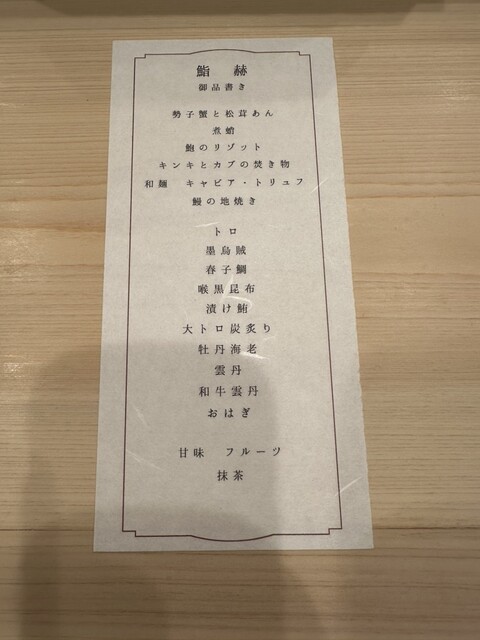 鮨 赫
御品書き
勢子蟹と松茸あん
煮蛸
鮑のリゾット
キンキとカブの焚き物
和麺 キャビア・トリュフ
鰻の地焼き
トロ
墨烏賊
春子鯛
喉黒昆布
漬け鮪
大トロ炭炙り
牡丹海老
雲丹
和牛雲丹
おはぎ
甘味 フルーツ
抹茶